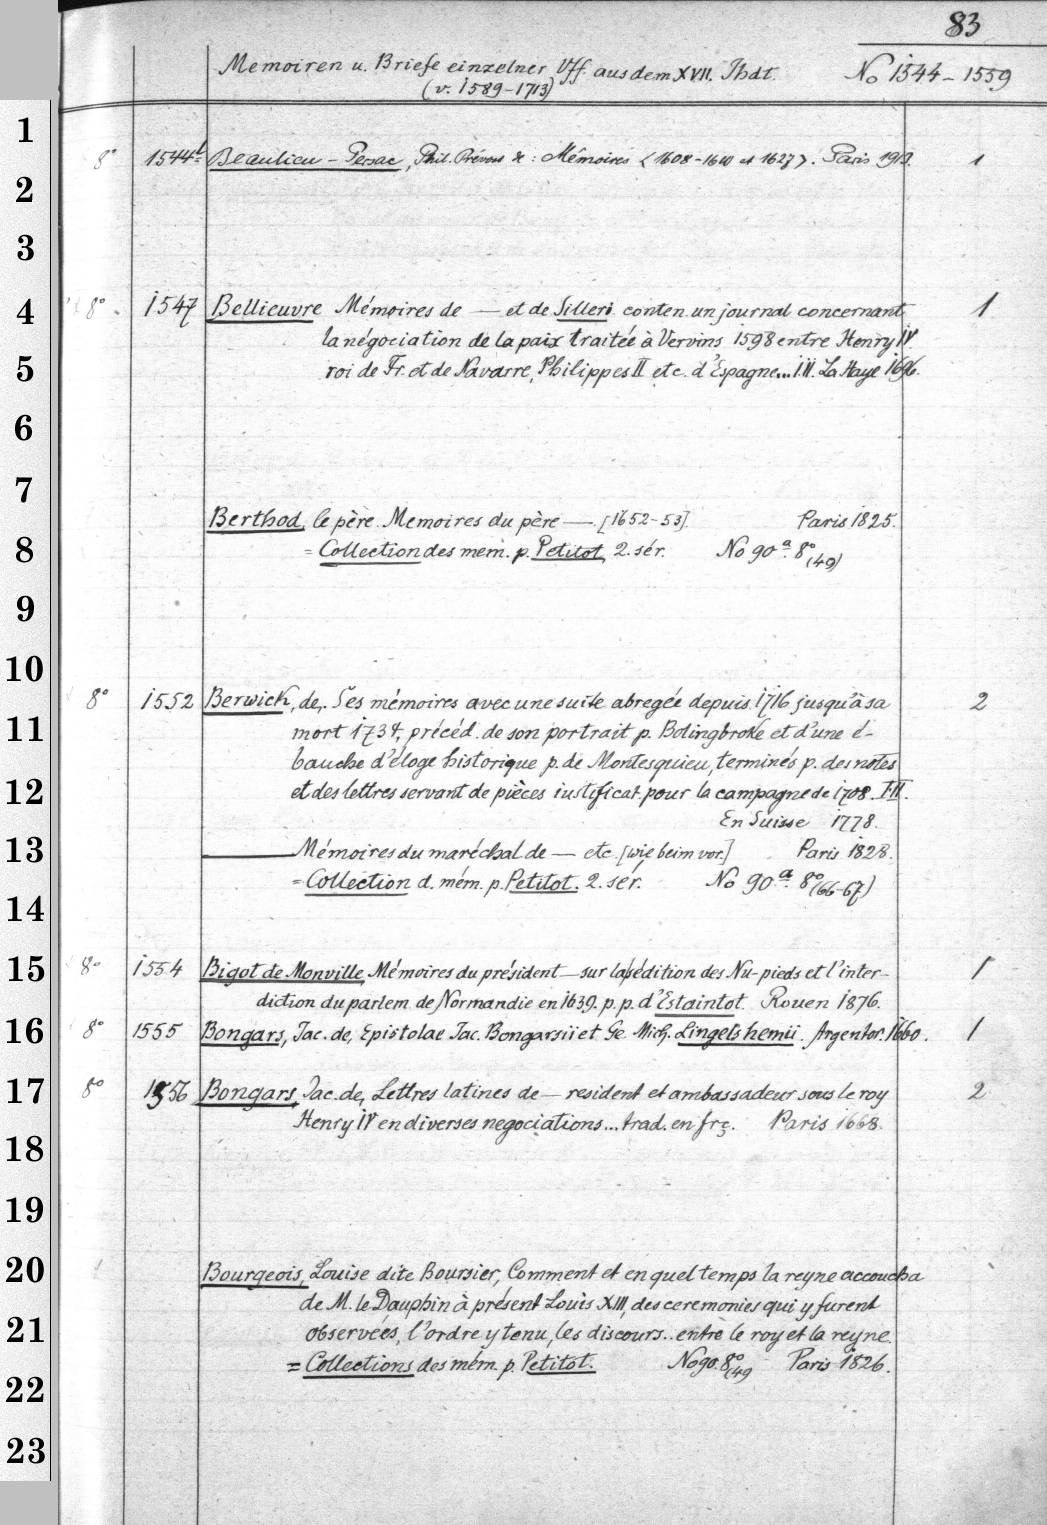 83
Memoiren u. Briefe einzelner Vff. aus dem XVII. Jhdt. No 1544 - 1559
(v. 1589-1713)
8° 1544b Beaulieu - Persac, Phil. Prévost de : Mémoires <1608-1610 et 1627>. Paris 1913. 1
8° 1547 Bellieuvre Mémoires de — et de Silleri conten. un journal concernant 1
la négociation de la paix traitée à Vervins 1598 entre Henry IV
roi de Fr. et de Navarre, Philippes II etc. d'Espagne... I.II. La Haye 1696.
Berthod, le père. Memoires du père —. [1652-53]. Paris 1825.
= Collection des mem. p. Petitot, 2. sér. No 90a. 8° (49)
8° 1552 Berwick, de,. Ses mémoires avec une suite abregée depuis 1716 jusqu'à sa 2
mort 1734, précéd. de son portrait p. Bolingbroke et d'une é-
bauche d'éloge historique p. de Montesquieu, terminés p. des notes
et des lettres servant de pièces iustificat. pour la campagne de 1708. I-II.
En Suisse 1778.
— Mémoires du maréchal de — etc. [wie beim vor.] Paris 1828.
= Collection d. mém. p. Petitot. 2. sér. No 90a. 8° (66-67)
8° 1554 Bigot de Monville, Mémoires du président — sur la sédition des Nu-pieds et l'inter- 1
diction du parlem. de Normandie en 1639. p. p. d'Estaintot. Rouen 1876.
8° 1555 Bongars, Jac. de, Epistolae Jac. Bongarsii et Ge. Mich. Lingelshemii. Argentor. 1660. 1
8° 1556 Bongars, Jac. de, Lettres latines de — resident et ambassadeur sous le roy 2
Henry IV en diverses negociations... trad. en frç. Paris 1668.
Bourgeois, Louise dite Boursier, Comment et en quel temps la reyne accoucha
de M. le Dauphin à présent Louis XIII, des ceremonies qui y furent
observées, l'ordre y tenu, les discours.. entre le roy et la reyne.
= Collections des mém. p. Petitot. No 90. 8° (49 Paris 1826.
1
2
3
4
5
6
7
8
9
10
11
12
13
14
15
16
17
18
19
20
21
22
23